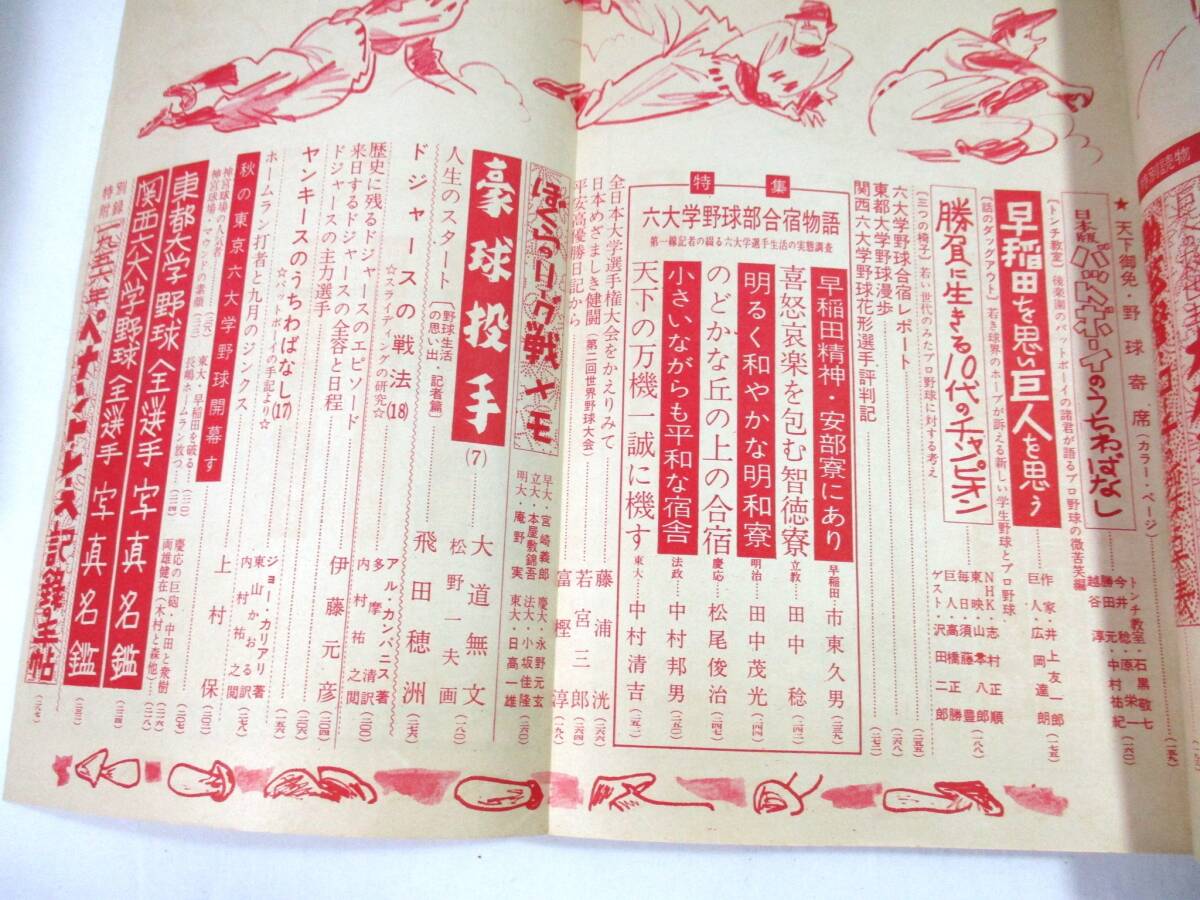 特別読物
★天下御免・野球寄席(カラー・ページ)
トンチ教室・石黒敬七
今井 稔・原 栄一
勝田 元・中村祐紀
越谷 淳
日本版 バットボーイのうちわばなし
〔トンチ教室〕後楽園のバットボーイの諸君が語るプロ野球の微苦笑編
早稲田を思い巨人を思う
作家・井上友一郎
巨人・広岡達朗
〔話のダッグアウト〕若き球界のホープが訴える新しい学生野球とプロ野球
勝負に生きる10代のチャピオン
NHK・志村正順
毎日・須藤 豊
巨人・高橋正勝
ゲスト・沢田二郎
〔三つの椅子〕若い世代のみたプロ野球に対する考え
六大学野球合宿レポート
東都大学野球漫歩
関西六大学野球花形選手評判記
特集
六大学野球部合宿物語
第一線記者の綴る六大学選手生活の実態調査
早稲田精神・安部寮にあり 早稲田・市東久男
喜怒哀楽を包む智徳寮 立教・田中 稔
明るく和やかな明和寮 明治・田中茂光
のどかな丘の上の合宿 慶応・松尾俊治
小さいながらも平和な宿舎 法政・中村邦男
天下の万機一誠に機す 東大・中村清吉
全日本大学選手権大会をかえりみて 藤浦 洸
日本めざましき健闘〔第二回世界野球大会〕 若宮三郎
平安高優勝日記から 富樫 淳
ぼくらのリーグ戦メモ
早大・宮崎義郎 慶大・永野元玄
立大・本屋敷錦吾 法大・小坂佳隆
明大・庵野 実 東大・日高一雄
豪球投手(7) 大道無文
松野一夫画
人生のスタート〔野球生活の思い出、記者篇〕 飛田穂洲
ドジャースの戦法(18) アル・カンパニス著
内村祐之閲
多摩 清訳
☆スライディングの研究☆
歴史に残るドジャースのエピソード
来日するドジャースの全容と日程 伊藤元彦
ドジャースの主力選手
ヤンキースのうちわばなし(17) ジョー・カリアリ著
東山かおる訳
内村祐之閲
☆バットボーイの手記より☆
ホームラン打者と九月のジンクス 上村 保
秋の東京六大学野球開幕す
神宮球場の人気者
神宮球場・マウンドの素顔
東大・早稲田を破る
長嶋ホームラン放つ
慶応の巨砲・中田と衆樹
両雄健在(木村と森他)
東都大学野球 全選手 写真名鑑
関西六大学野球 全選手 写真名鑑
特別附録 一九五六年 ペナントレース記録手帖